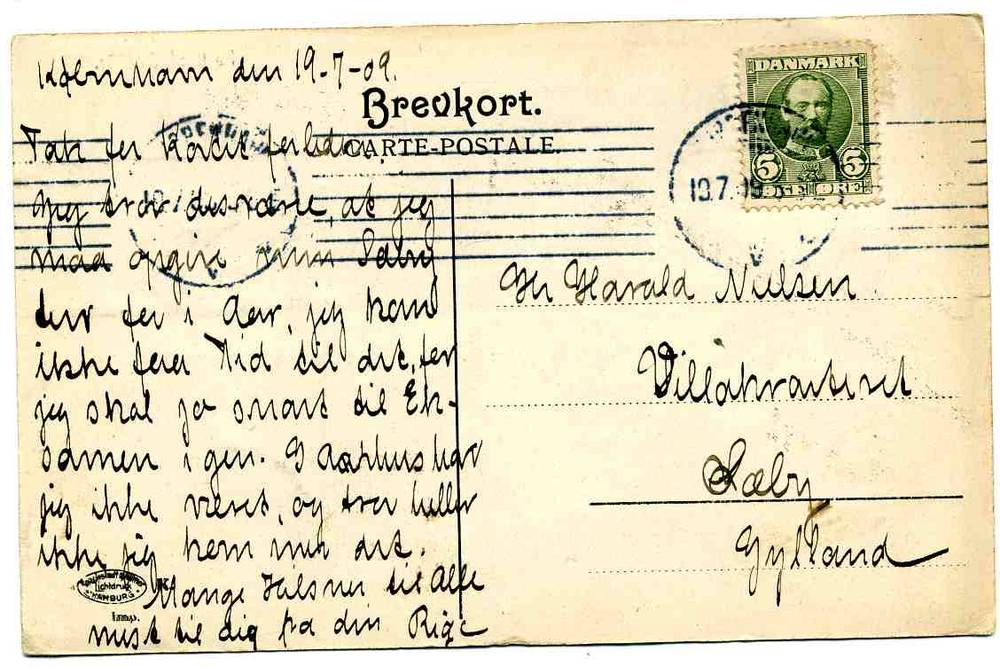 København den 19-7-09.
Brevkort.
CARTE-POSTALE.
DANMARK
5 5
ØRE ØRE
19.7.09
Tak for Kortet forleden.
Jeg tror desværre, at jeg
maa opgive min Sæby
tur for i Aar, jeg kan
ikke faa Tid til det, for
jeg skal jo snart til Ek-
samen igen. I Aarhus har
jeg ikke været, og tror heller
ikke jeg kom mer det.
Mange Hilsner til Alle
mest til dig fra din
Hr Harald Nielsen.
Villakvarteret
Sæby
Jylland
Lichtdruck
HAMBURG